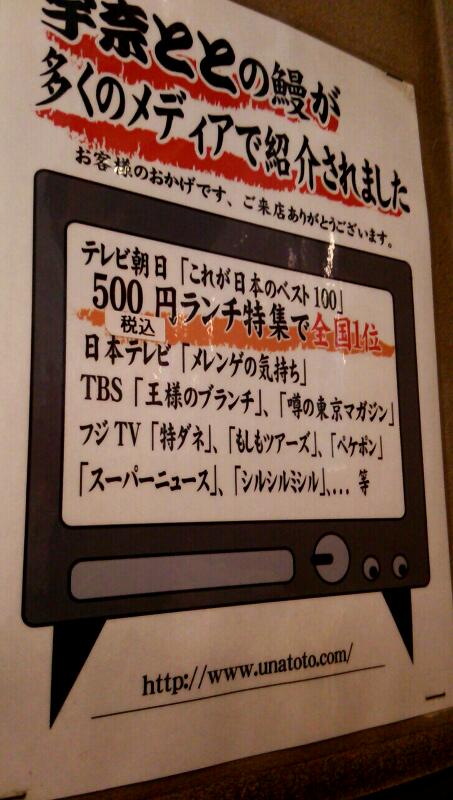 宇奈ととの鰻が
多くのメディアで紹介されました
お客様のおかげです、ご来店ありがとうございます。
テレビ朝日「これが日本のベスト100」
500円ランチ特集で全国1位
税込
日本テレビ「メレンゲの気持ち」
TBS「王様のブランチ」、「噂の東京マガジン」
フジTV「特ダネ」、「もしもツアーズ」、「ペケポン」
「スーパーニュース」、「シルシルミシル」,... 等
http://www.unatoto.com/